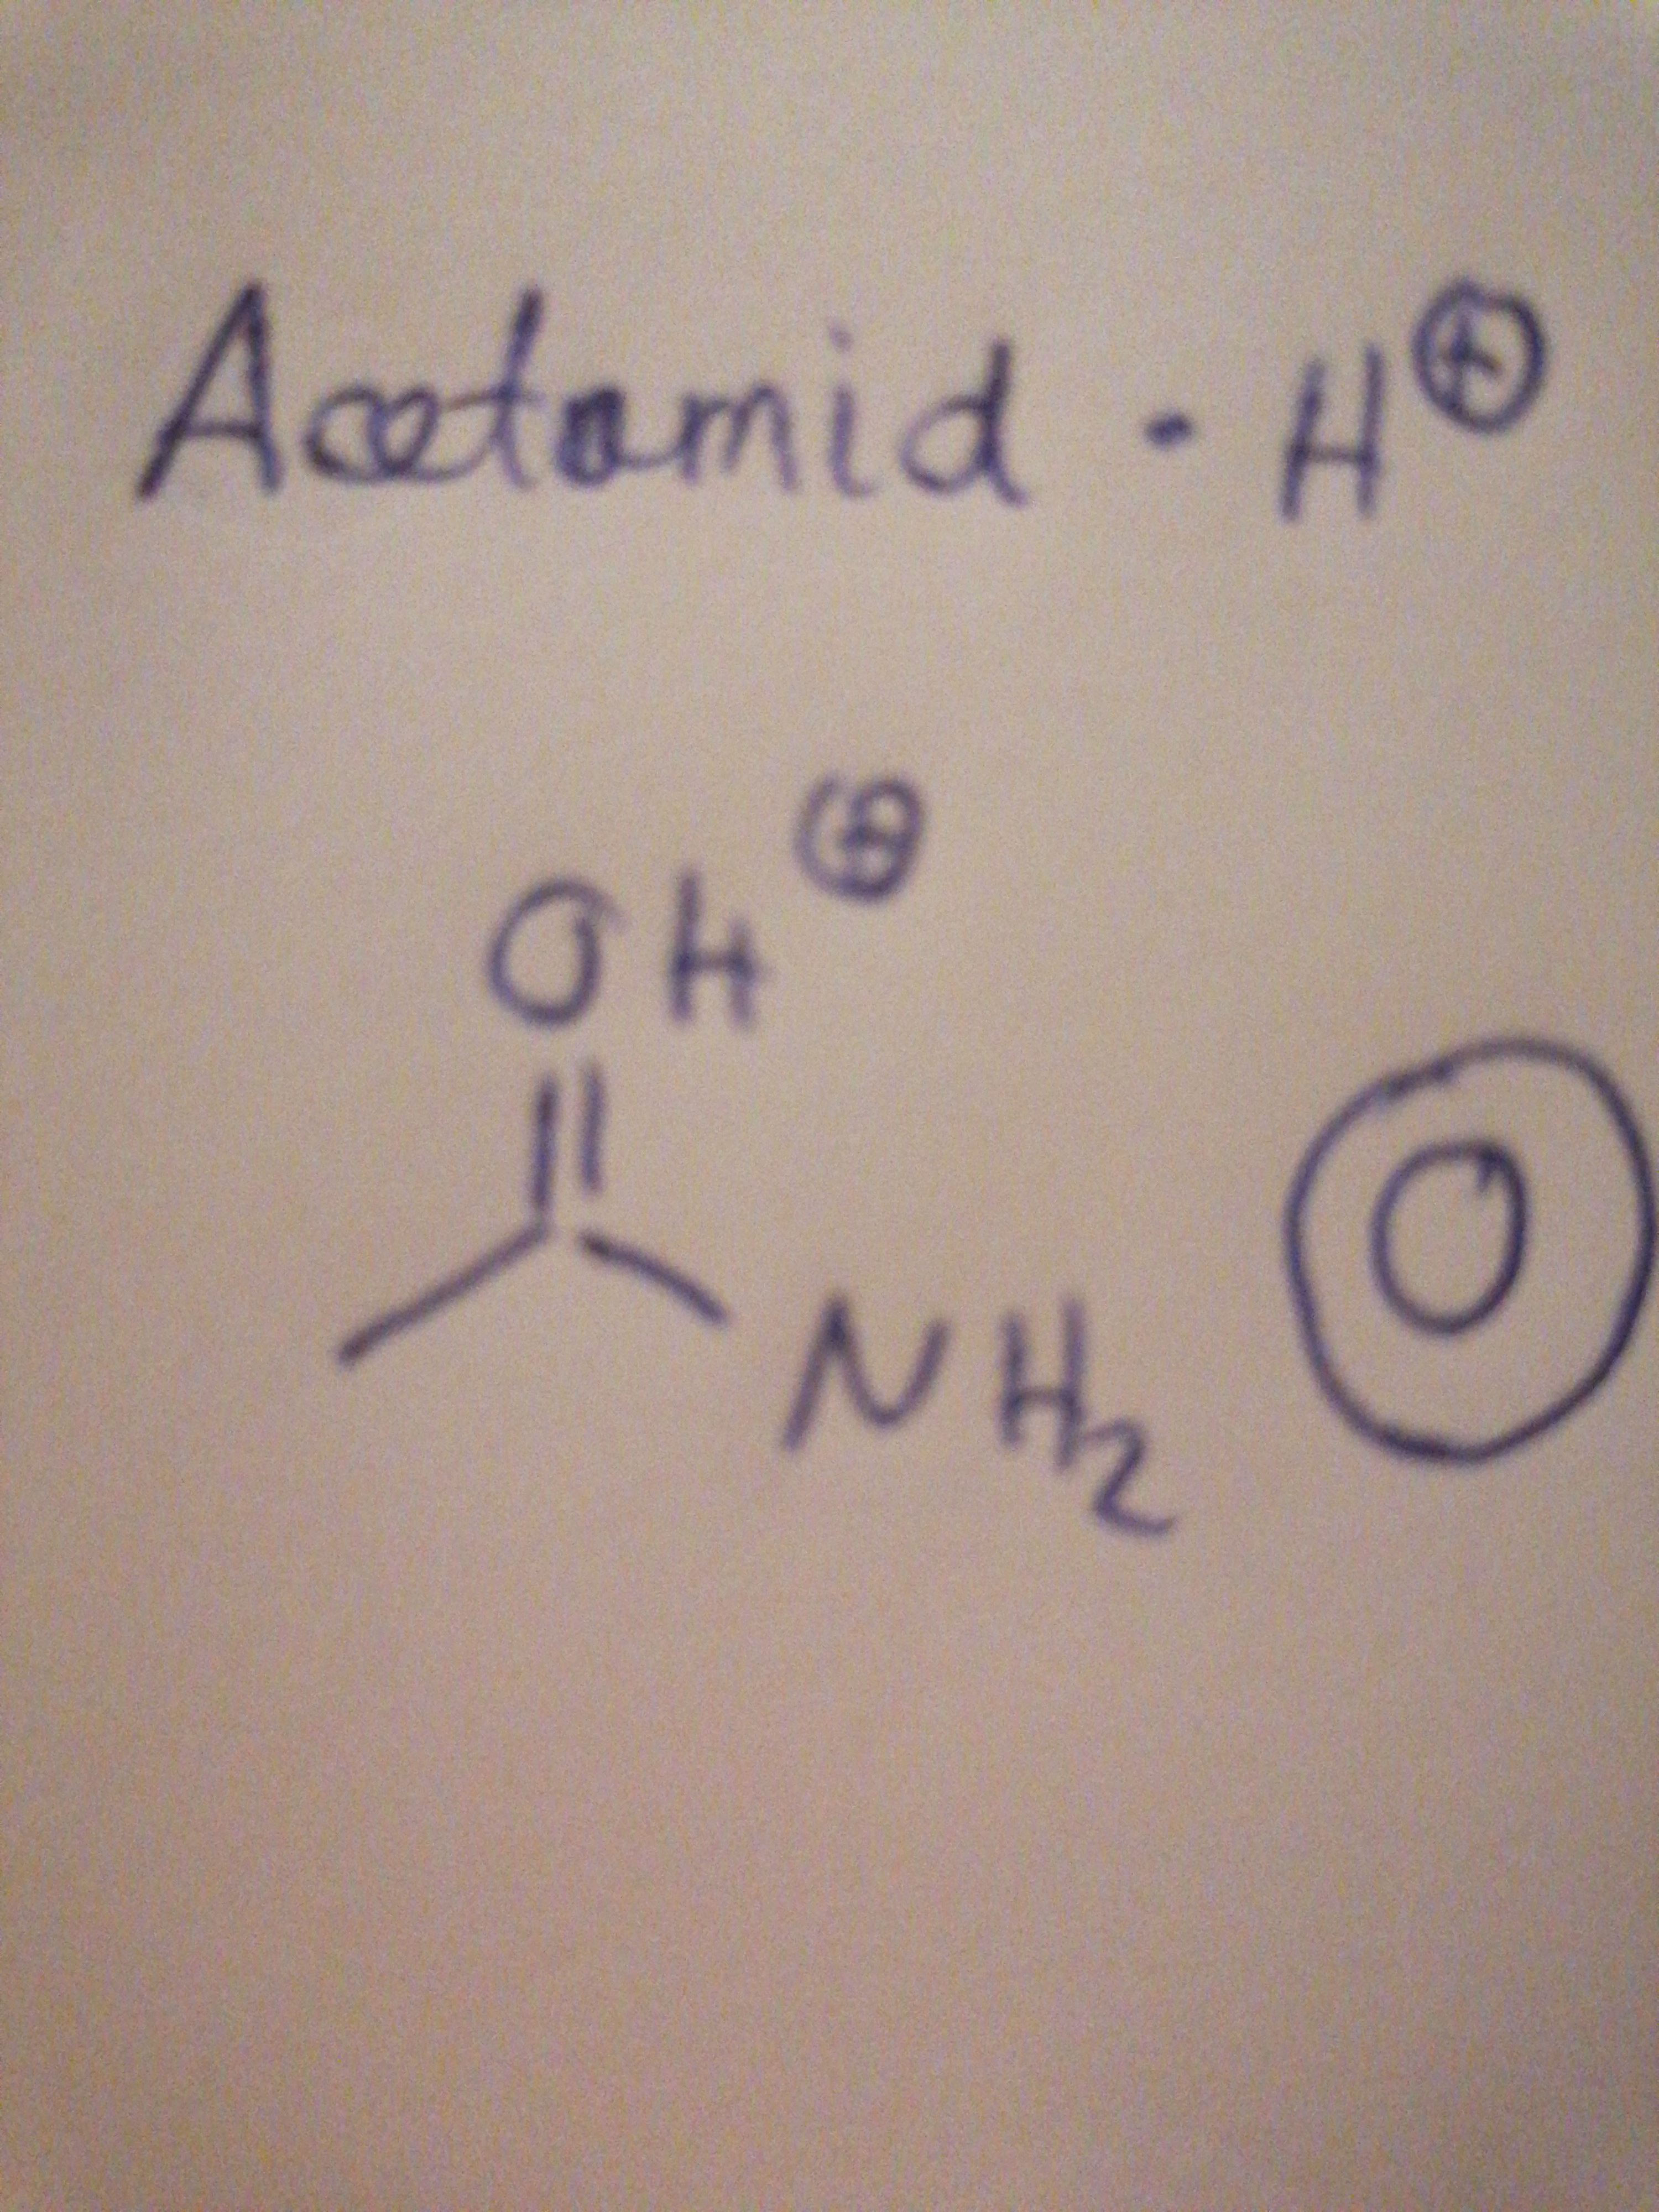 Acetamid · H⊕
OH⊕
NH₂
O